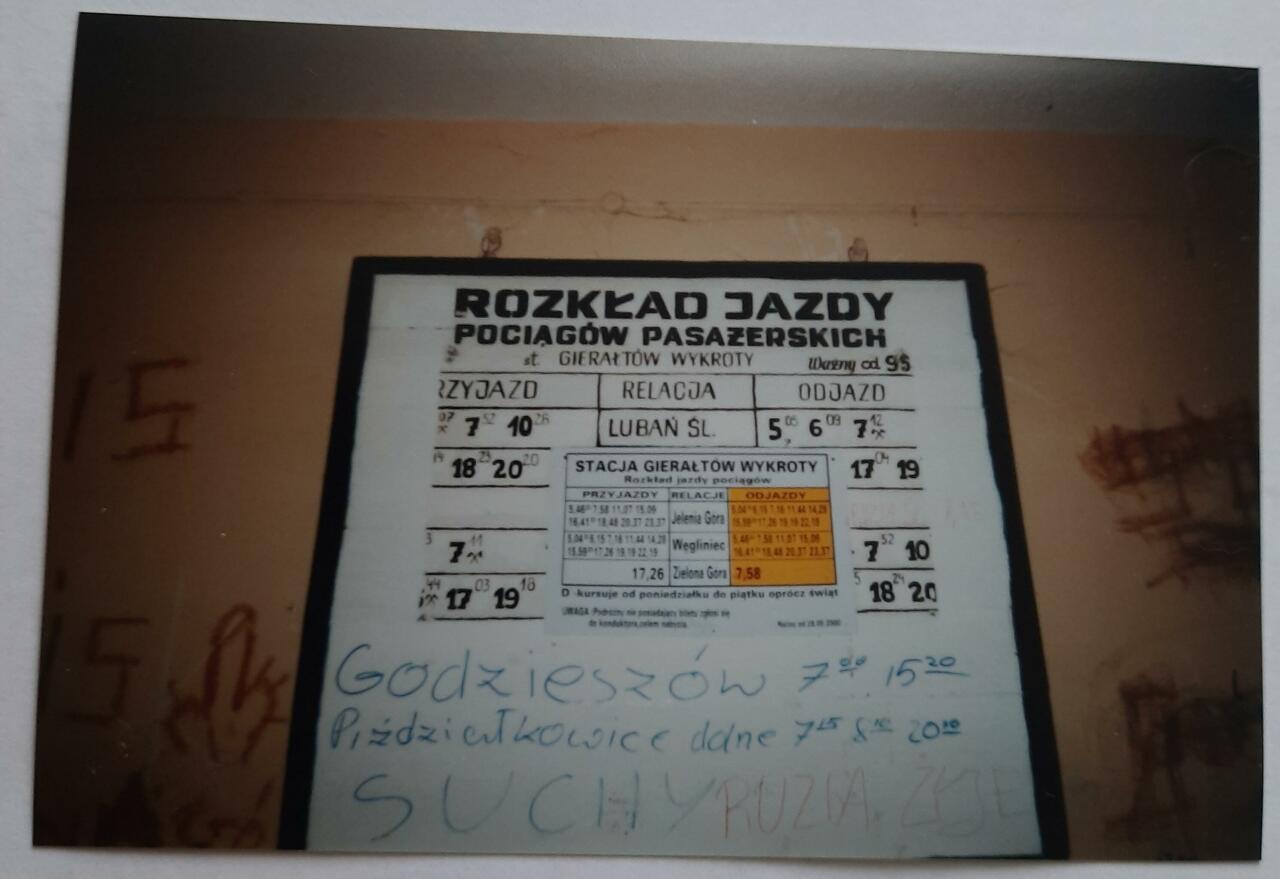 ROZKŁAD JAZDY
POCIĄGÓW PASAŻERSKICH
st. GIERAŁTÓW WYKROTY Ważny od 95
RZYJAZD RELACJA ODJAZD
07 7 52 10 26 LUBAŃ ŚL. 5 05 6 09 7 12
18 23 20 20 17 04 19
STACJA GIERAŁTÓW WYKROTY
Rozkład jazdy pociągów
PRZYJAZDY RELACJE ODJAZDY
5,46 7,58 11,07 15,09 Jelenia Góra 5,04 6,15 7,16 11,44 14,28
16,41 18,48 20,37 23,37 15,59 17,26 19,19 22,19
5,04 6,15 7,16 11,44 14,28 Węgliniec 5,46 7,58 11,07 15,09
15,59 17,26 19,19 22,19 16,41 18,48 20,37 23,37
17,26 Zielona Góra 7,58
D - kursuje od poniedziałku do piątku oprócz świąt
UWAGA: Podróżny nie posiadający biletu zgłosi się
do konduktora, celem nabycia.
7 11 7 52 10
44 17 03 19 18 18 24 20
Godzieszów 7 00 15 20
Piździałkowice dolne 7 15 8 10 20 10
SUCHY RUZIA ŻYJE
15
15